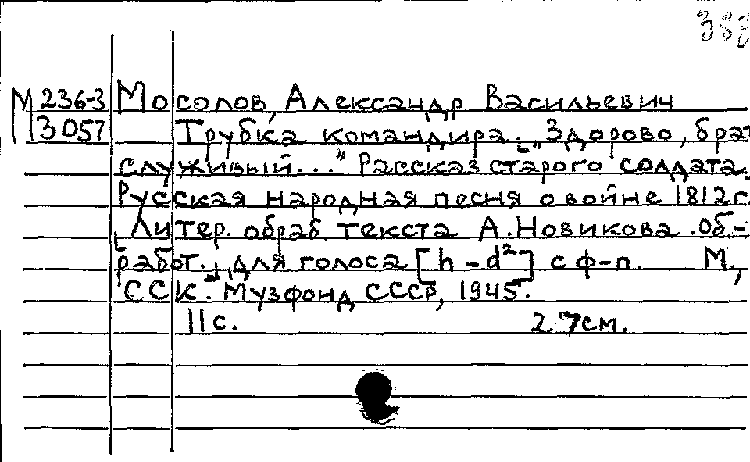 383
М 236-3 Мосолов, Александр Васильевич
3057 Трубка командира. [„Здорово, брат
служивый..." Рассказ старого солдата.
Русская народная песня о войне 1812 г.
Литер. обраб. текста А. Новикова. Об-
работ.] для голоса [h-d²] с ф-п. М.,
ССК. Музфонд СССР, 1945.
11 с. 27 см.